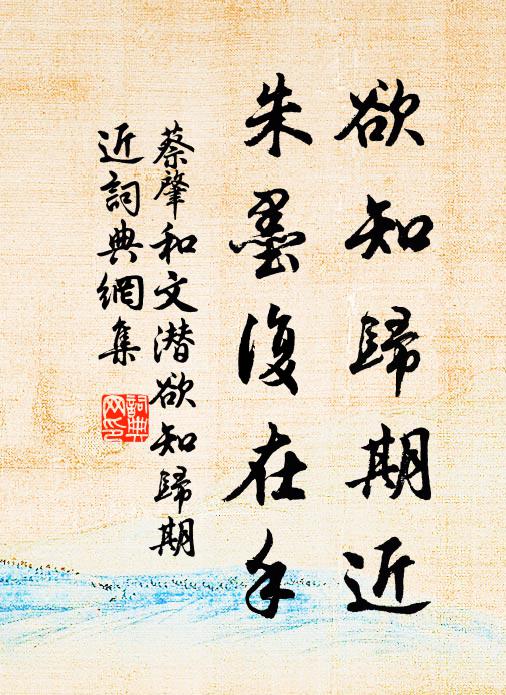 欲知歸期近
朱墨復在手
蔡肇和文潜欲知歸期
近詞典網集
詞典
网印